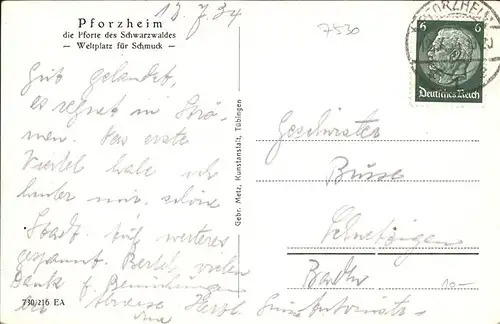 13/7 34
Pforzheim
die Pforte des Schwarzwaldes
— Weltplatz für Schmuck —
7530
PFORZHEIM
6 6
Deutsches Reich
Gut gelandet,
es regnet in Strö-
men. Das erste
Viertel habe ich
hinter mir, schöne
Stadt. Auf weiteres
gespannt. Bertel, vielen
Dank f.
Herzl.
Gebr. Metz, Kunstanstalt, Tübingen
Geschwister
Busse
Baden
10-
730/216 EA